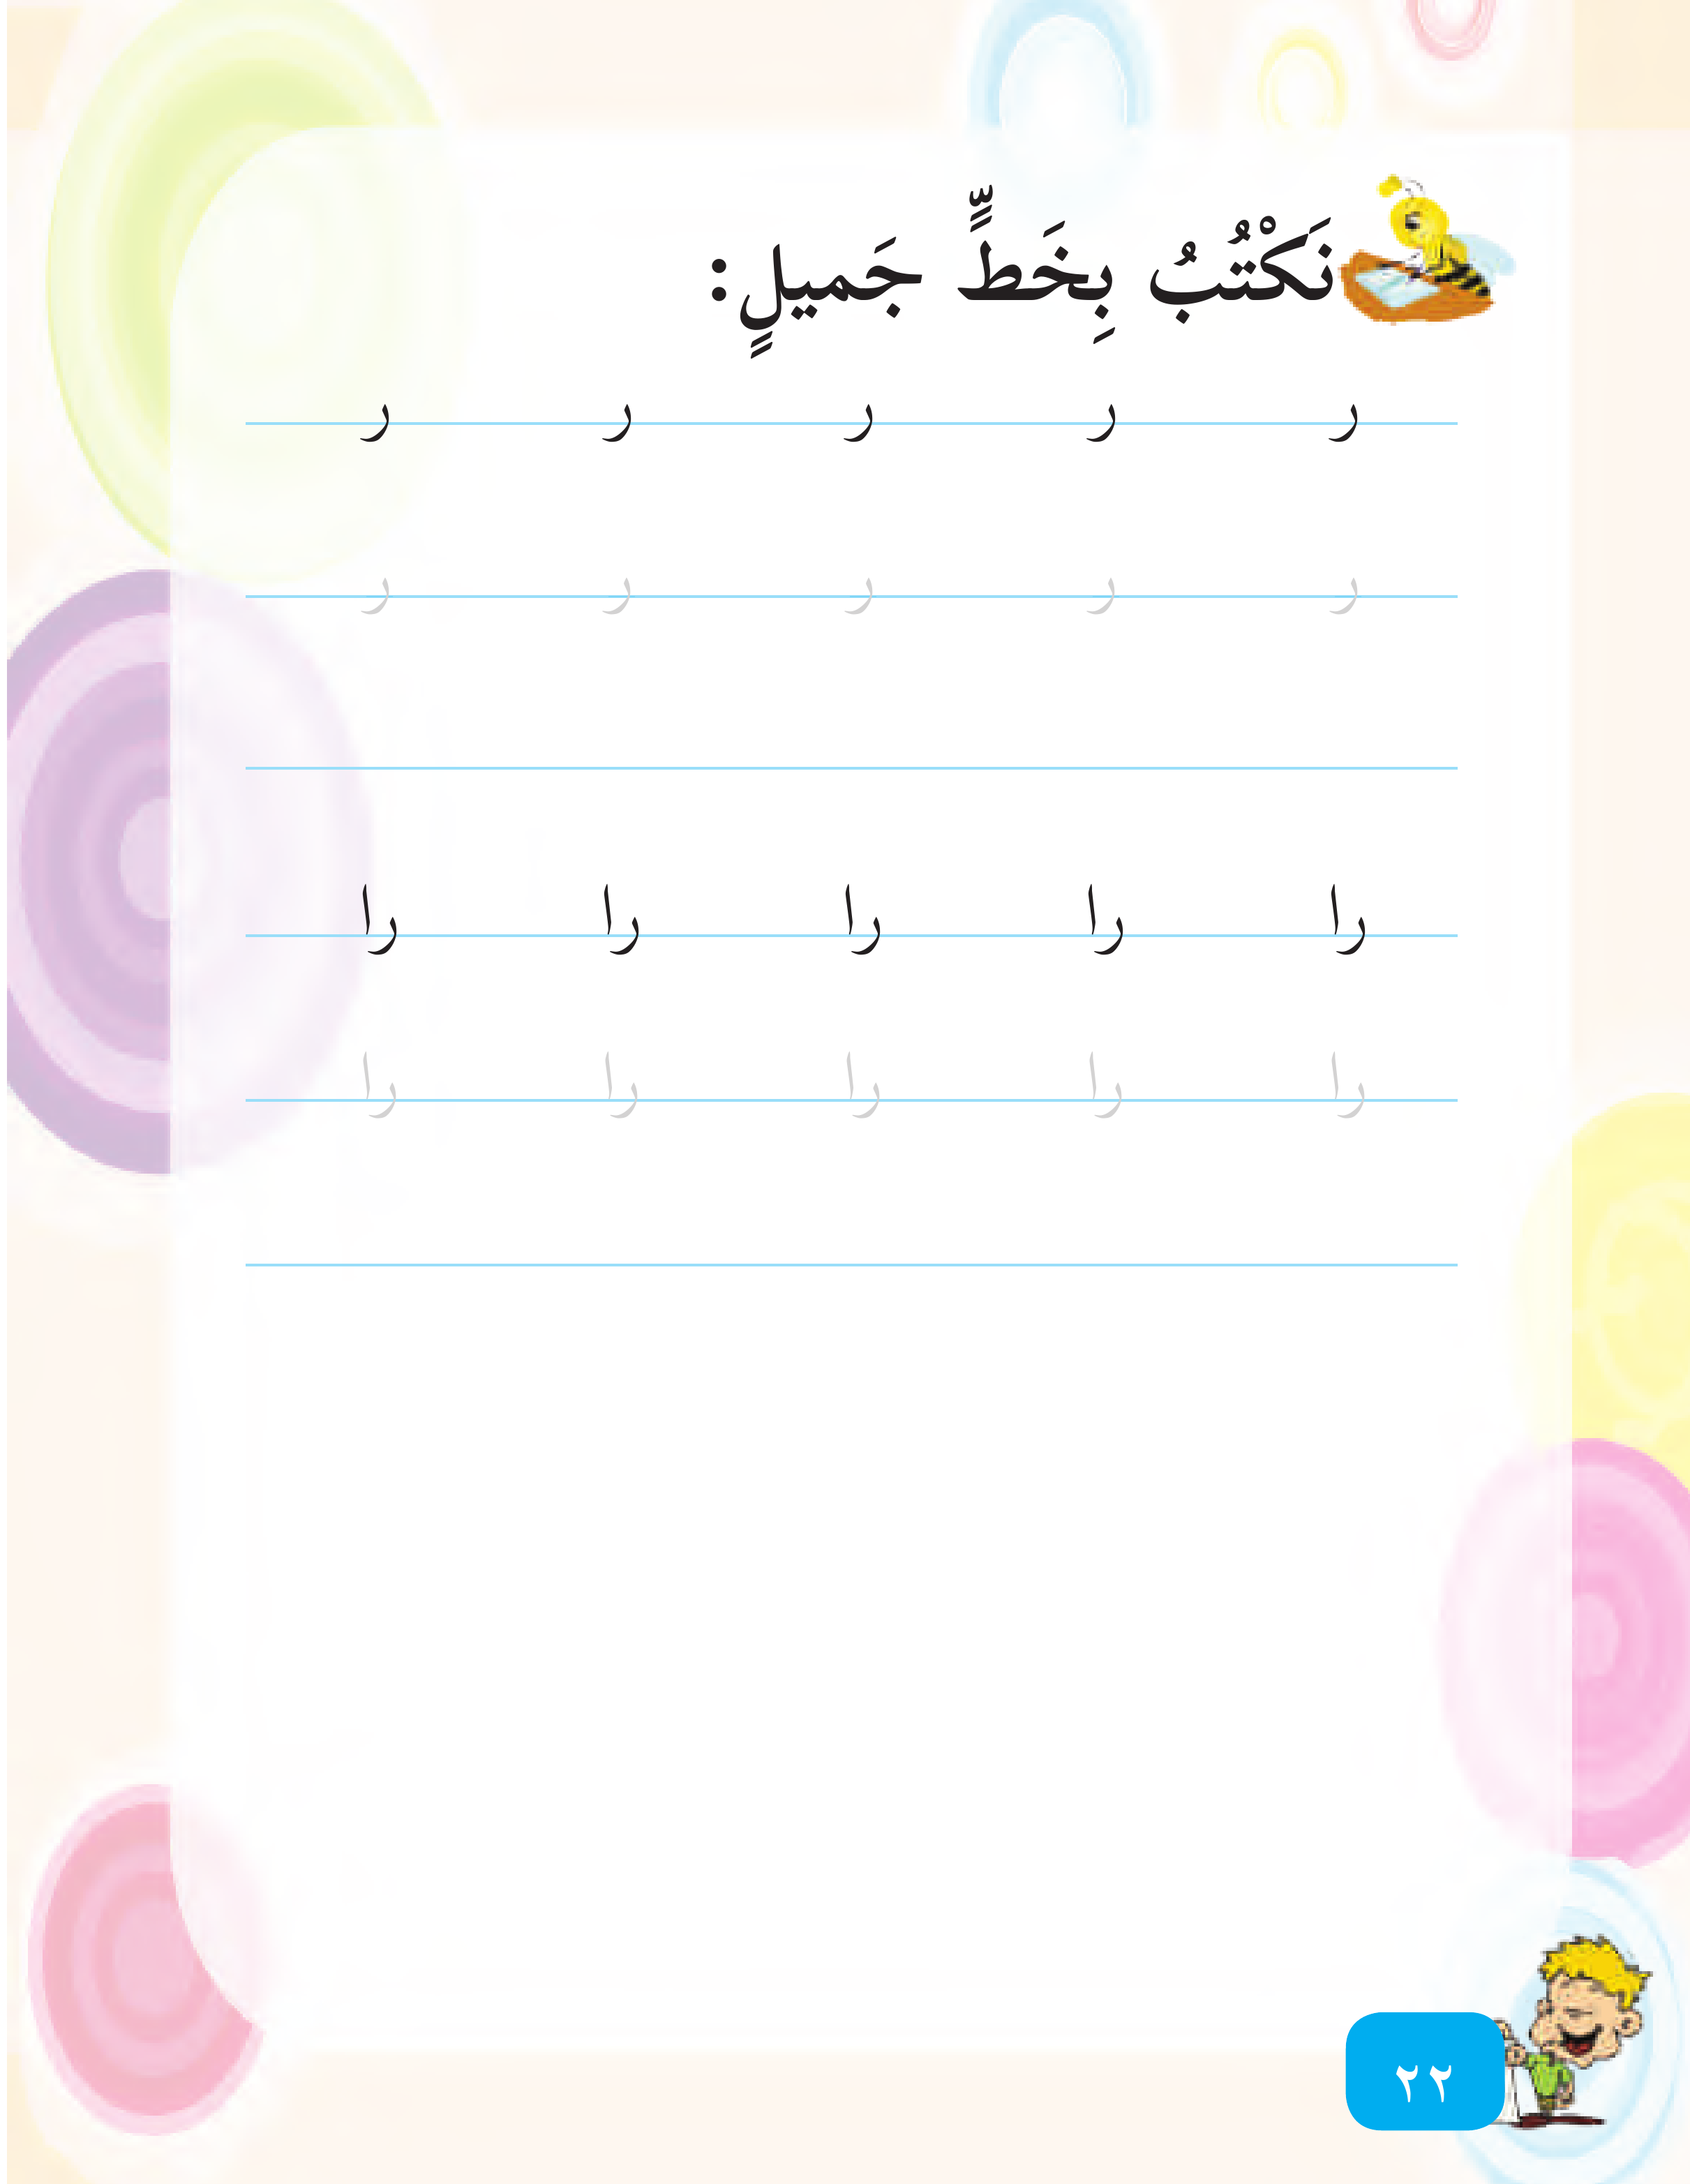 نَكْتُبُ بِخَطٍّ جَميلٍ:
ر ر ر ر ر
ر ر ر ر ر
را را را را را
را را را را را
٢٢